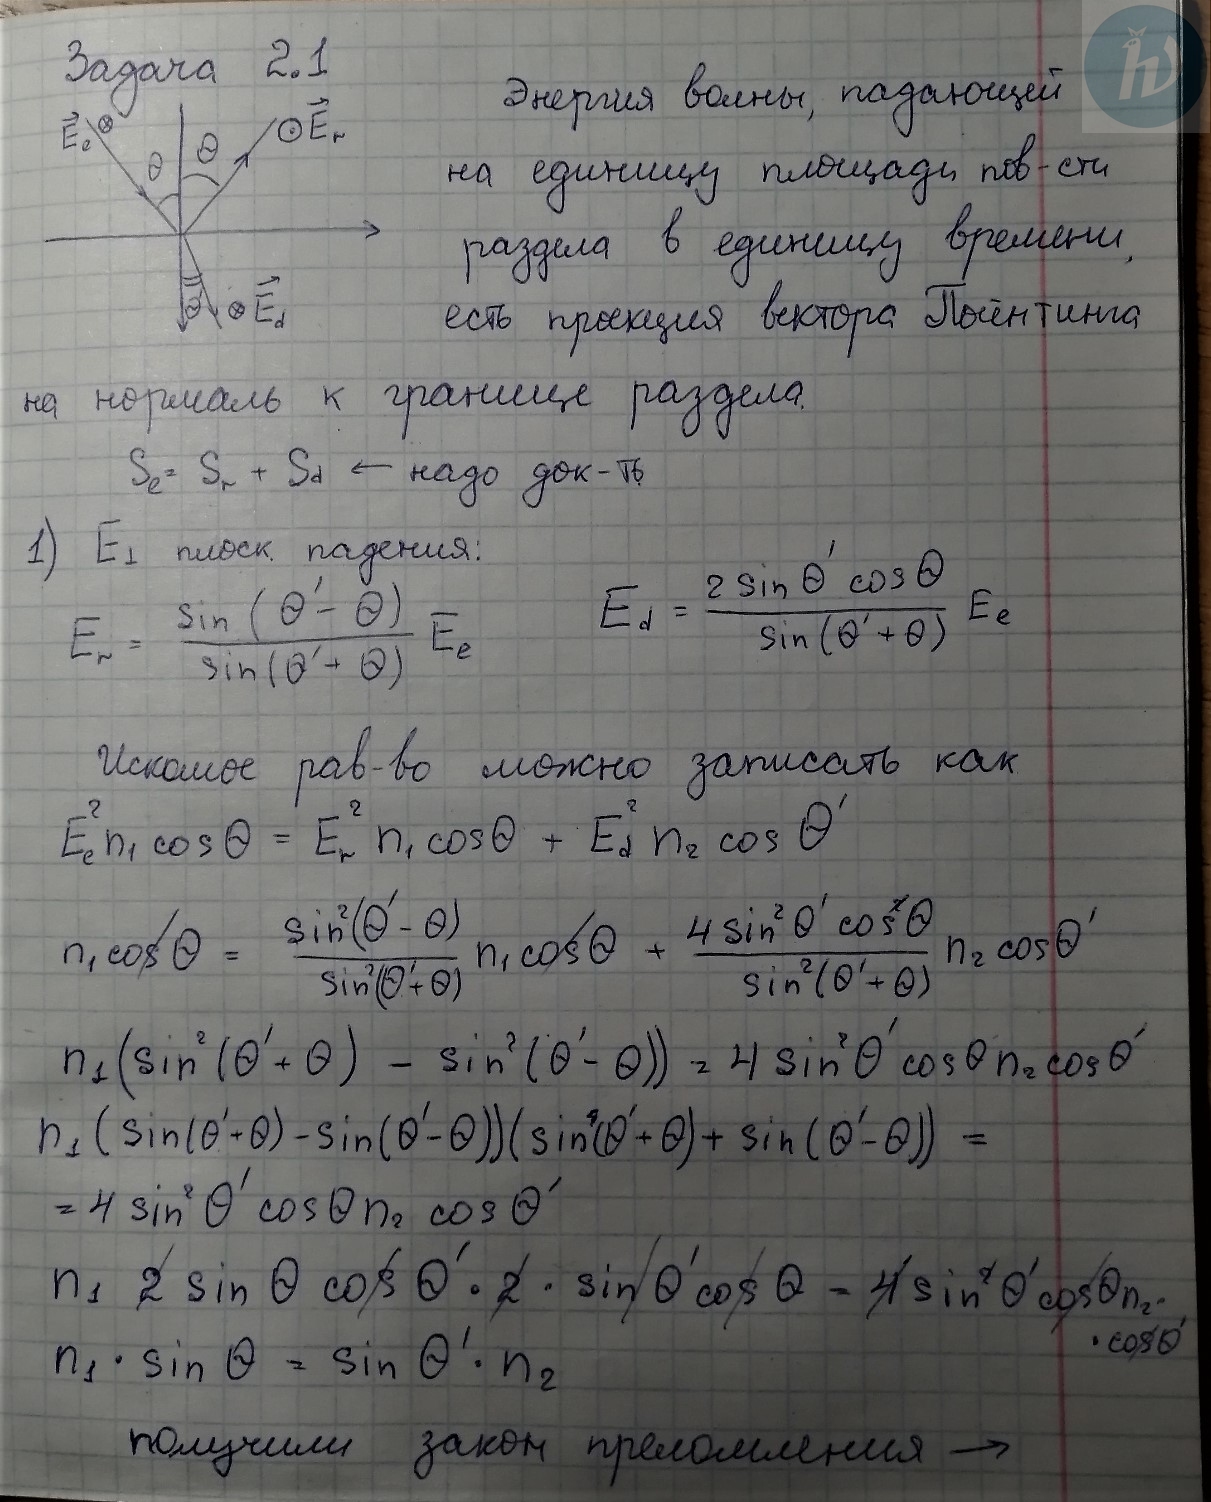 Задача 2.1
E⃗e ⊗ θ θ ⊙ E⃗r
θ' ⊗ E⃗d
Энергия волны, падающей
на единицу площади пов-сти
раздела в единицу времени,
есть проекция вектора Пойнтинга
на нормаль к границе раздела.
Se = Sr + Sd ← надо док-ть
1) E⊥ плоск. падения:
Er = sin(θ' - θ) / sin(θ' + θ) Ee    Ed = 2 sin θ' cos θ / sin(θ' + θ) Ee
Искомое рав-во можно записать как
Ee² n1 cos θ = Er² n1 cos θ + Ed² n2 cos θ'
n1 cos θ = sin²(θ' - θ) / sin²(θ' + θ) n1 cos θ + 4 sin² θ' cos² θ / sin²(θ' + θ) n2 cos θ'
n1 (sin²(θ' + θ) - sin²(θ' - θ)) = 4 sin² θ' cos θ n2 cos θ'
n1 (sin(θ' + θ) - sin(θ' - θ))(sin(θ' + θ) + sin(θ' - θ)) =
= 4 sin² θ' cos θ n2 cos θ'
n1 2 sin θ cos θ' · 2 · sin θ' cos θ = 4 sin² θ' cos θ n2 ·
· cos θ'
n1 · sin θ = sin θ' · n2
получили закон преломления →